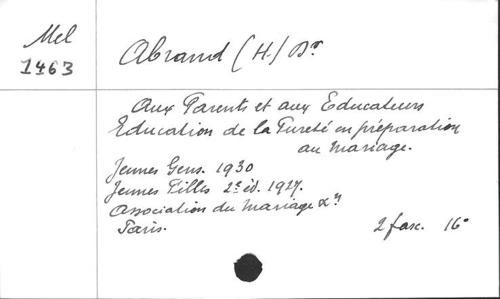 Mel
1463
Abrand (H.) Dr
Aux Parents et aux Educateurs
Education de la Pureté en préparation
au mariage.
Jeunes Gens. 1930
Jeunes Filles 2e éd. 1927.
Association du mariage
Paris. 2 fasc. 16°